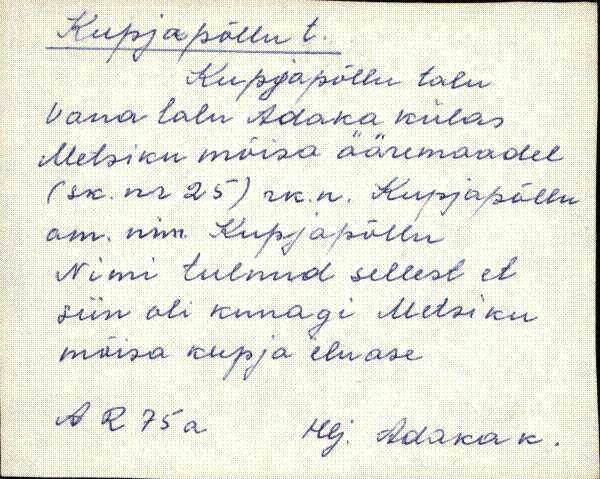 Kupjapõllu t.
Kupjapõllu talu
Vana talu Adaka külas
Metsiku mõisa ääremaadel
(sk. nr 25) rk.n. Kupjapõllu
am. nim. Kupjapõllu
Nimi tulnud sellest et
siin oli kunagi Metsiku
mõisa kupja eluase
A R 75 a
Hlj. Adaka k.